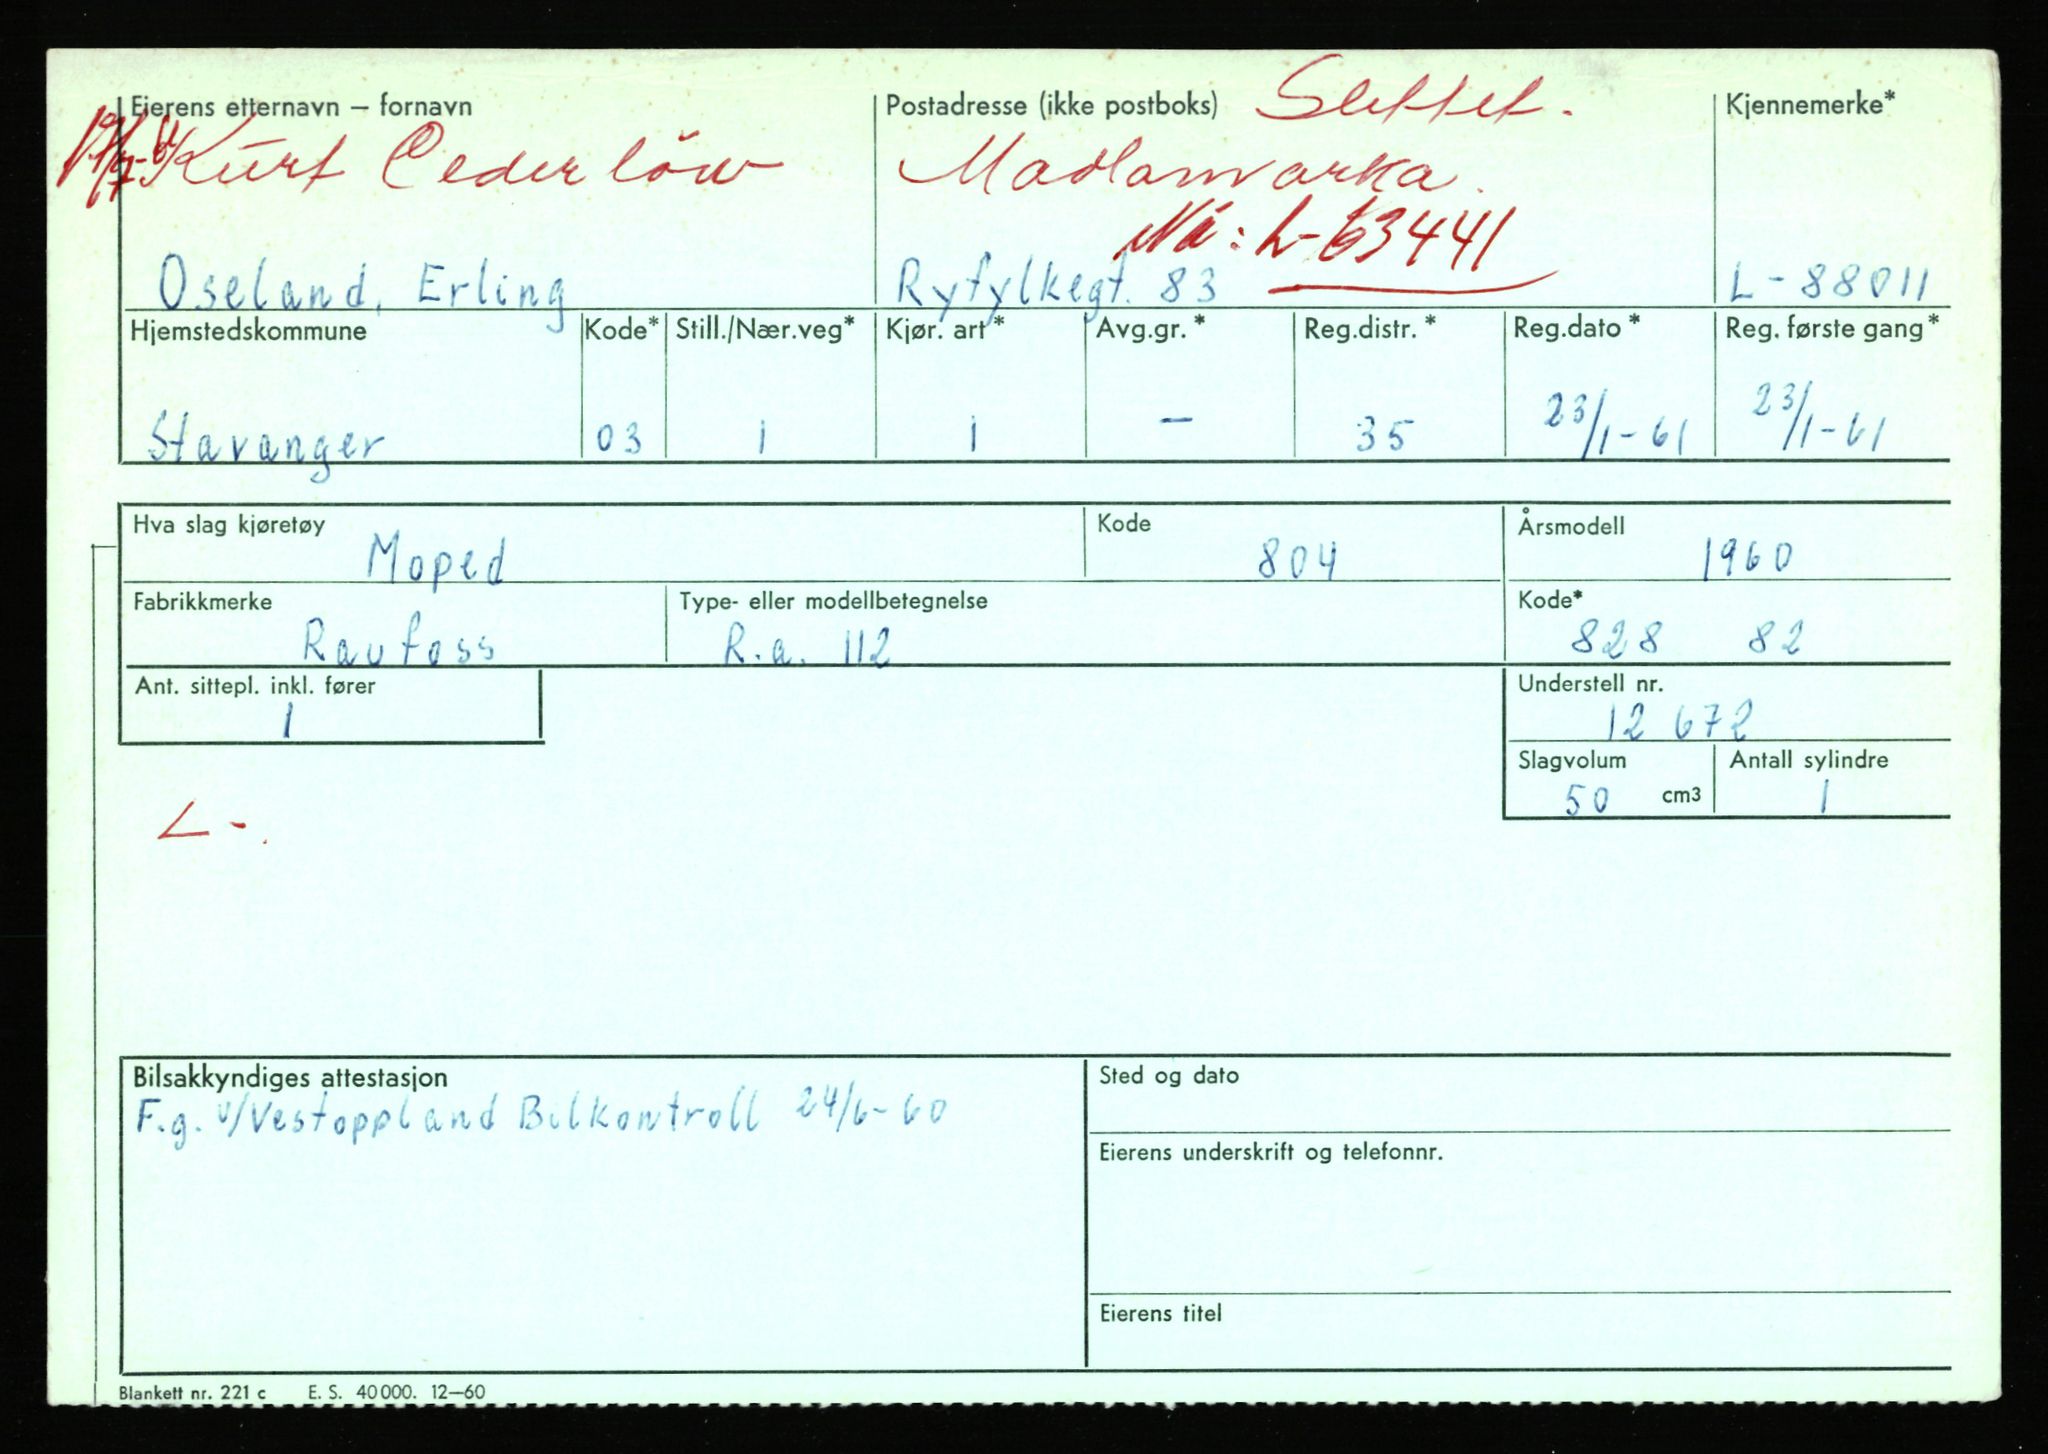 Eierens etternavn – fornavn Postadresse (ikke postboks) Slettet. Kjennemerke*
Kurt Cederlöw Madlamarka.
Nå: L-63441
Oseland, Erling Ryfylkegt. 83 L-88011
Hjemstedskommune Kode* Still./Nær.veg* Kjør. art* Avg.gr.* Reg.distr.* Reg.dato* Reg. første gang*
Stavanger 03 1 1 – 35 23/1-61 23/1-61
Hva slag kjøretøy Kode Årsmodell
Moped 804 1960
Fabrikkmerke Type- eller modellbetegnelse Kode*
Raufoss R.a. 112 828 82
Ant. sittepl. inkl. fører Understell nr.
1 12 672
Slagvolum Antall sylindre
50 cm3 1
L-.
Bilsakkyndiges attestasjon Sted og dato
F.g. v/Vestoppland Bilkontroll 24/6-60
Eierens underskrift og telefonnr.
Eierens titel
Blankett nr. 221 c E. S. 40000. 12–60